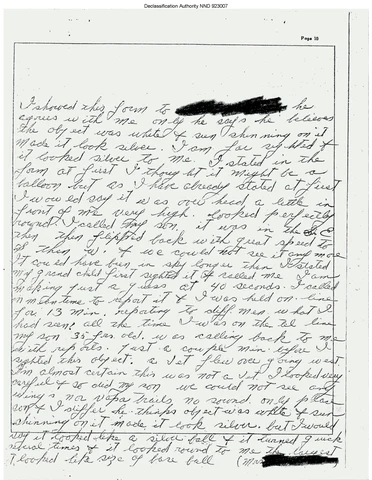 Declassification Authority NND 923007
Page 10
I showed this form to he
agrees with me only he says he believes
the object was white & sun shinning on it
made it look silver. I am far sighted &
it looked silver to me. I stated in the
form at first I thought it might be a
balloon but as I have already stated at first
I would say it was over head a little in
front of me very high. looked perfectly
round. I called my son, it was in the S.E
then then flipped back with great speed to
S then W. & we could not see it any more
It could have been in sky longer then I stated
my grand child first sighted it & called me I am
making just a guess at 40 seconds. I called
to report it & I was held on line
for 13 min. repeating to diff men what I
had seen. all the time I was on the tel line
my son 35 yrs old. was calling back to me
with reports. just a couple min before I
sighted this object. a Jet flew over going west
I'm almost certain this was not a Jet. I looked very
careful & so did my son we could not see any
wings nor vapor trails no sound. only place
son & I differ he thinks object was white & sun
shinning on it made it look silver. but I would
say it looked like a silver ball & it turned quick
several times & it looked round to me the largest
I looked like size of base ball (Mrs